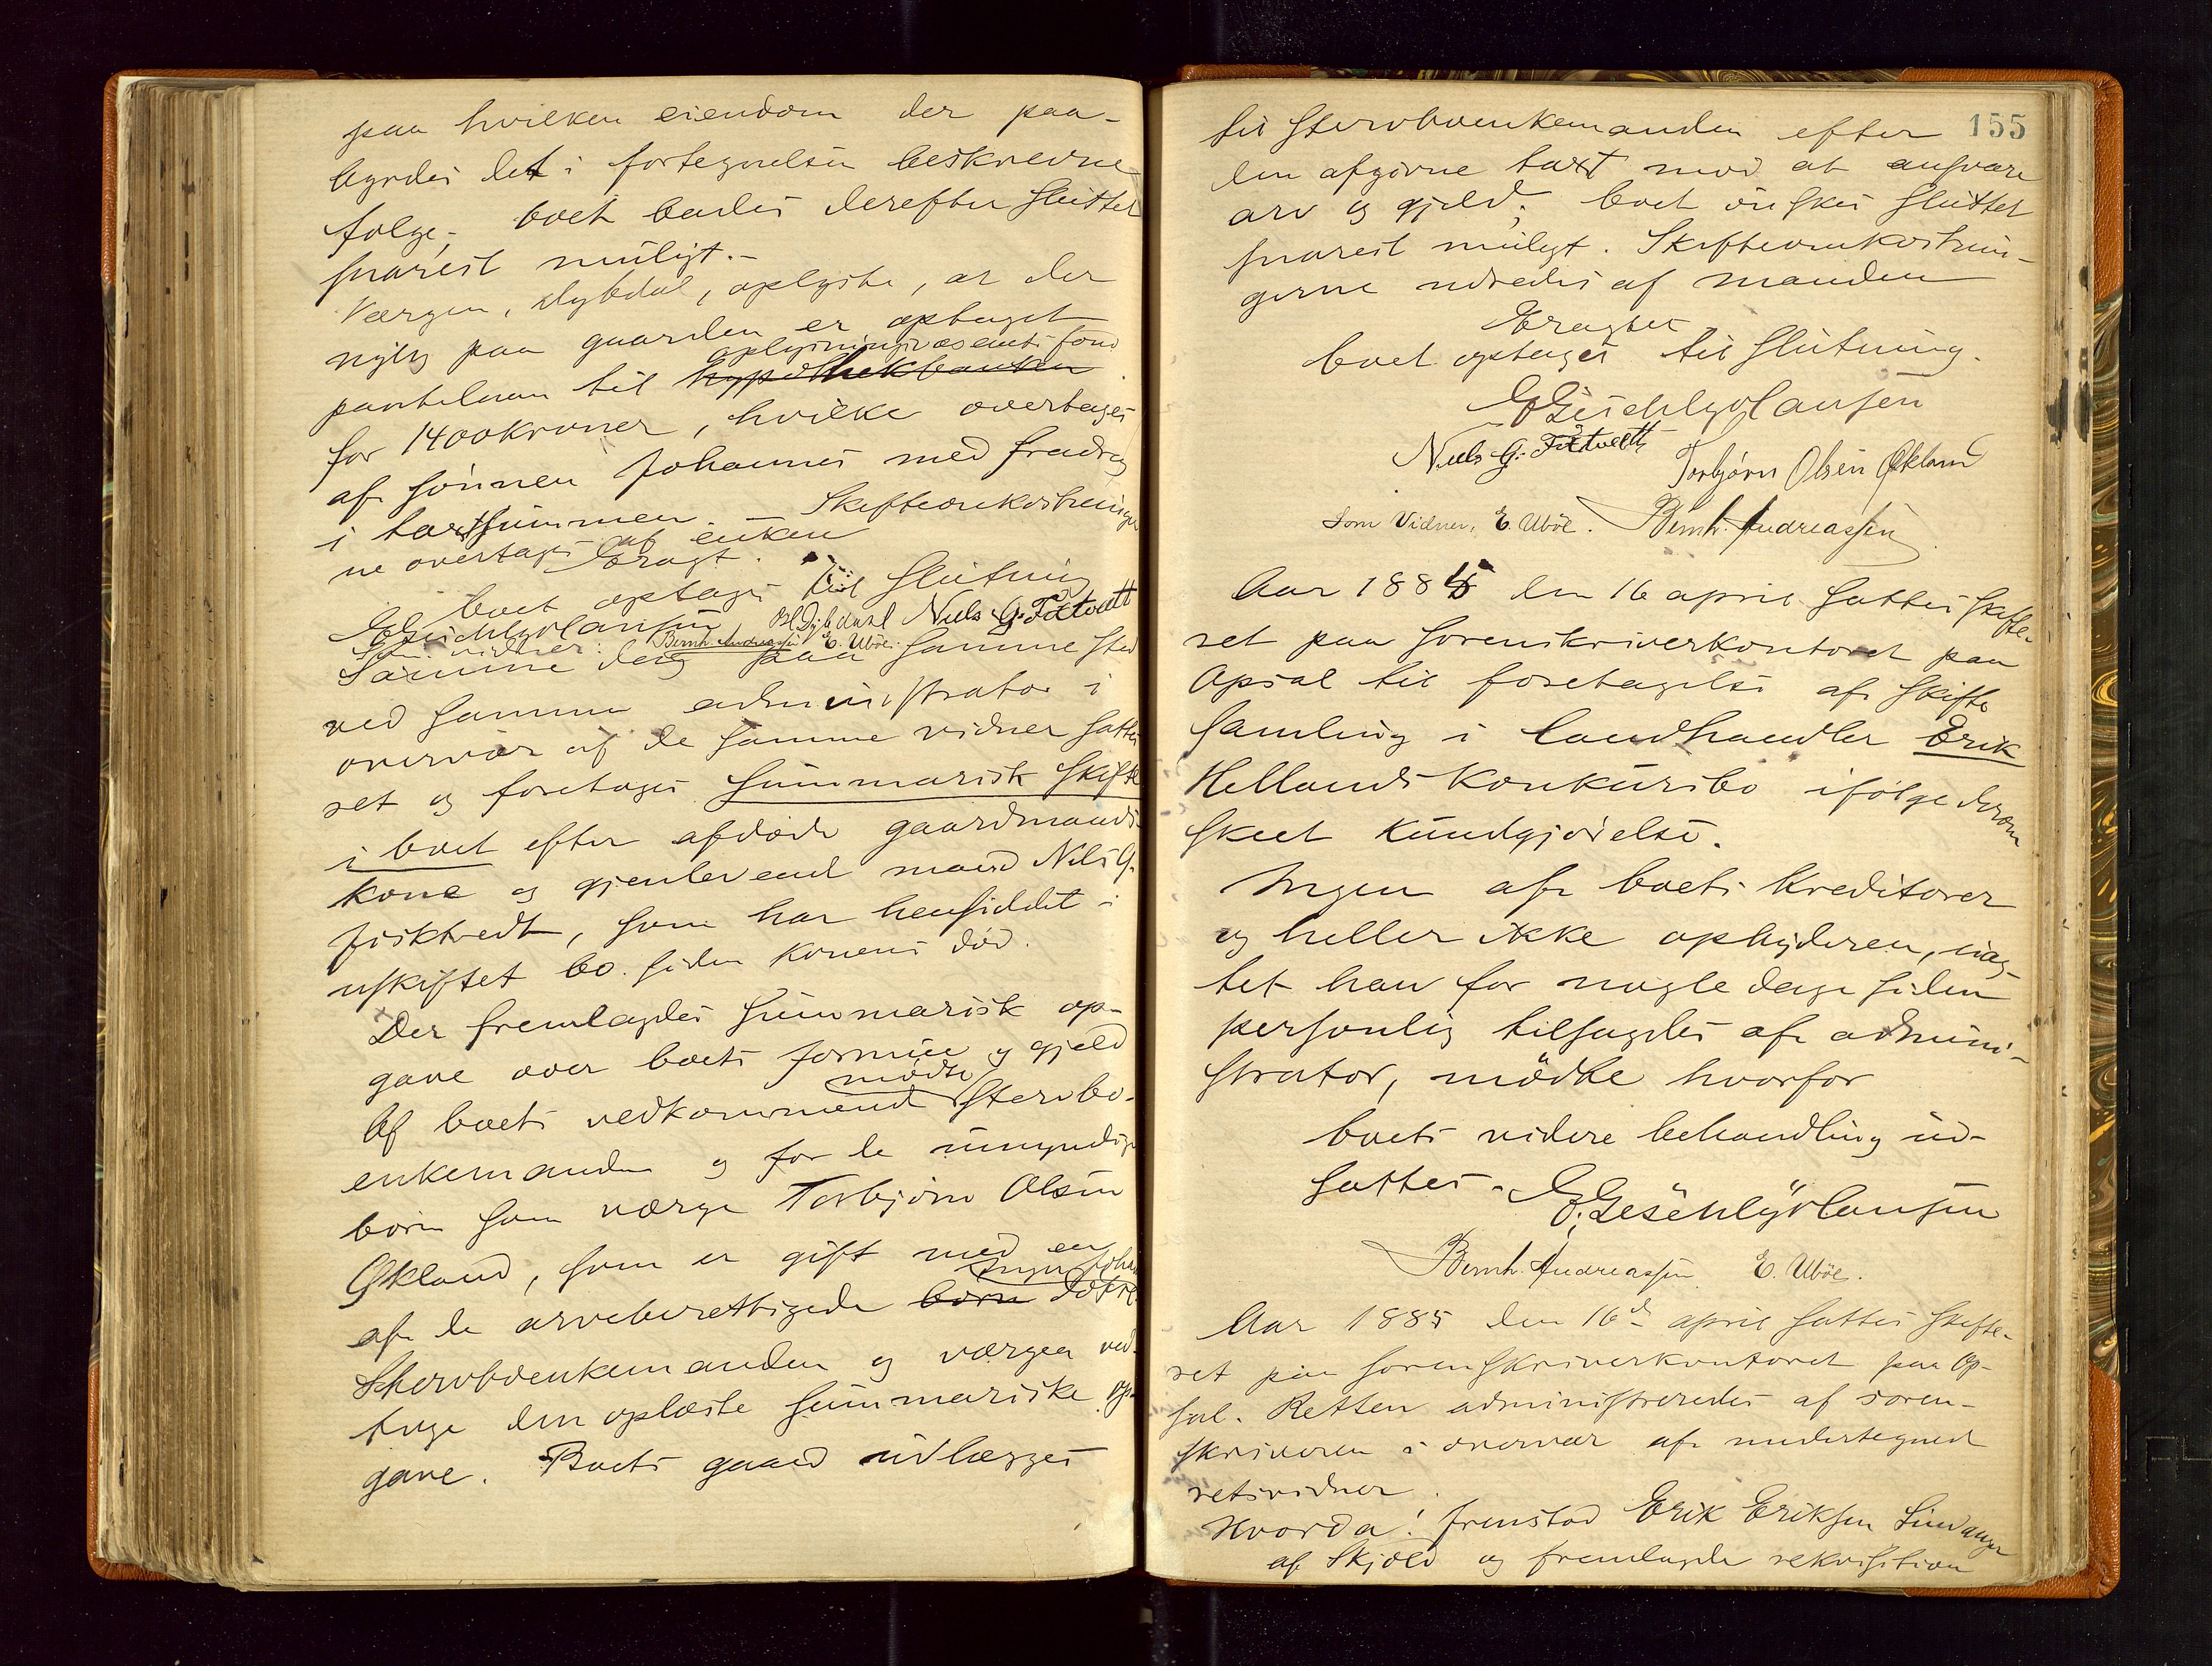 paa hvilken eiendom der paa-
byrdes det i fortegnelsen beskrevne
følge; boet bedes derefter sluttet
snarest muligt.-
Værgen, Dybdal, oplyste, at der
nylig paa gaarden er optaget
oplysningsvæsenets fond
pantelaan til hypothekbanken
for 1400 kroner, hvilke overtages
af sønnen Johannes med fradrag
i taxtsummen. - Skifteomkostninger
ne overtages af enken
Eragt.
boet optages til slutning
EGeschlyvlansen BHDybdahl Niels G. Fiktvedt
Som vidner: Bernh. Andreassen E. Uböe.
Samme dag paa samme sted
ved samme administrator i
overvær af de samme vidner sattes
ret og foretoges summarisk skifte
i boet efter afdøde gaardmands
kone og gjenlevend mand Nils G.
Fisktvedt, som har hensiddet i
uskiftet bo siden konens död.
Der fremlagdes summarisk op-
gave over boets formue og gjeld
mödte
Af boets vedkommend stervbo-
enkemanden og for de umyndige
börn som værge Torbjörn Olsen
Økland, som er gift med en
af de arveberettigede börn Døtre
Stervboenkemanden og værgen ved-
toge den oplæste summariske op-
gave. Boets gaard udlægges
155
til stervboenkemanden efter
den afgivne taxt mod at ansvare
arv og gjeld; boet önskes sluttet
snarest muligt. Skifteomkostnin-
gerne udredes af manden
Eragtet
boet optages til slutning.
EGeschlyvlansen
Niels G. Fiktvedt Torbjörn Olsen Økland
Som Vidner, E. Uböe. Bernh. Andreassen
Aar 1885 den 16 april sattes skifte-
ret paa sorenskriverkontoret paa
Opsal til foretagelse af skifte
samling i landhandler Erik
Hellands konkursbo ifölge derom
skeet kundgjörelse.
Ingen af boets kreditorer
og heller ikke opbyderen, uag-
tet han for nogle dage siden
personlig tilsagdes af admini-
strator, mödte hvorfor
boets videre behandling ud-
sattes. EGeschlyvlansen
Bernh. Andreassen E. Uböe.
Aar 1885 den 16de april sattes skifte-
ret paa sorenskriverkontoret paa Op-
sal. Retten administreredes af soren-
skriveren i overvær af undertegned
retsvidner.
Hvorda! fremstod Erik Eriksen
af Skjold og fremlagde rekvisition